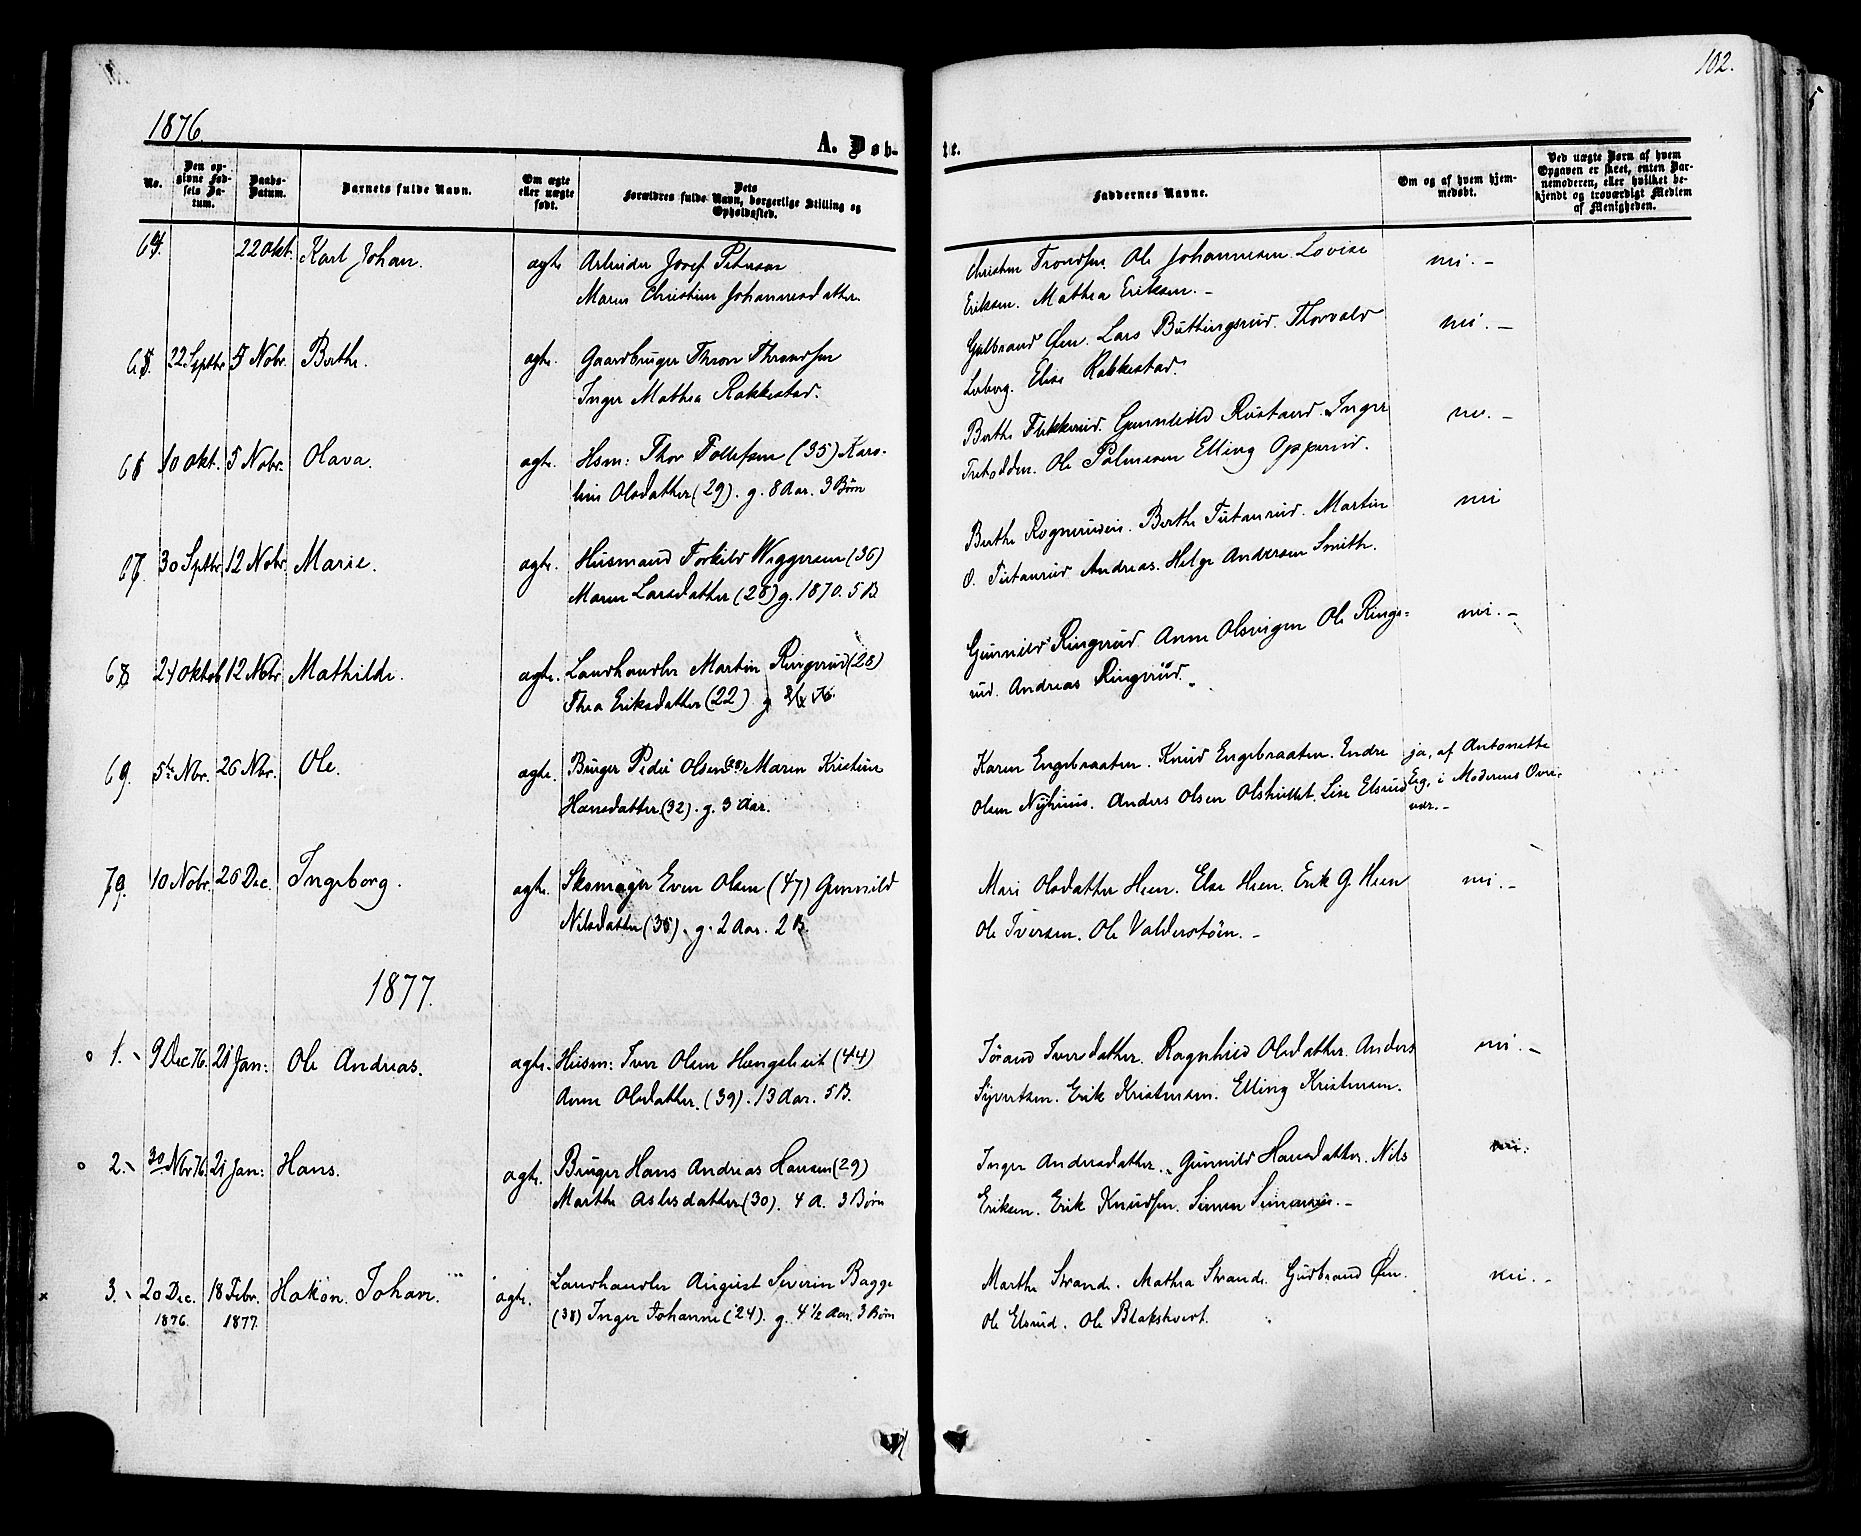 102.
1876.
A. Døb-
te.
No.
Den opgivne Fødsels Datum.
Daabs-Datum.
Barnets fulde Navn.
Om ægte eller uægte født.
Dets Forældres fulde Navn, borgerlige Stilling og Opholdssted.
Faddernes Navne.
Om og af hvem hjemmedøbt.
Ved uægte Børn af hvem Opgaven er skeet, enten Barnemoderen, eller hvilket bekjendt og troværdigt Medlem af Menigheden.
64. 22 Okt. Karl Johan. ægte Arbeider Josef Petersen
Maren Christine Johannesdatter.
Christine Trondsen. Ole Johannesen. Lovise
Eriksen. Mathea Eriksen. –
nei. –
65. 22 Septbr 5 Nobr. Berthe. ægte. Gaardbruger Thron Throndsen
Inger Mathea Rakkestad.
Gulbrand Øen. Lars Buttingsrud. Thorvald
Lerberg. Elise Rakkestad.
nei. –
66 10 Okt. 5 Nobr. Olava. ægte. Hsm: Thor Tollefsen (35) Karo-
line Olsdatter (29). g. 8 Aar. 3 Børn
Berthe Flikkerud. Gunnild Rustand. Inger
Ole Palmesen Elling Opperud.
nei. –
67. 30 Septbr. 12 Nobr. Marie. ægte. Husmand Torkild Wiggersen (36)
Maren Larsdatter (28) g. 1870. 5 B.
Berthe Rogneruden. Berthe Tutanrud. Martin
O. Tutanrud Andreas. Helge Andersen Smith.
nei
68 24 Oktob 12 Nobr Mathilde. ægte. Landhandler Martin Ringerud (28)
Thea Eriksdatter (22) g
Gunnild Ringerud. Anne Olsvigen Ole Ringe-
rud. Andreas Ringerud.
nei. –
69. 5te Nbr. 26 Nbr. Ole. ægte. Bruger Peder Olsen Maren Kristine
Hansdatter (32). g. 3 Aar.
Karen Engebraaten. Knud Engebraaten. Endre
Olsen Nyhuus. Anders Olsen Olshullet. Lise Elsrud
ja, af Antonette
Eeg, i Moderens Over-
vær. –
70. 10 Nobr. 26 Dec. Ingeborg. ægte. Skomager Even Olsen (47) Gunnild
Nilsdatter (36). g. 2 Aar. 2 B.
Mari Olsdatter Heen. Else Heen. Erik G. Heen
Ole Iversen. Ole Valderstøen. –
nei. –
1877.
1. 9 Dec 76. 21 Jan: Ole Andreas. ægte. Husm: Iver Olsen Hungeleit (44)
Anne Olsdatter. (39). 13 Aar. 5 B.
Jørand Iversdatter. Ragnhild Olsdatter. Anders
Syvertsen. Erik Kristensen. Elling Kristensen.
nei. –
2. 30 Nbr 76. 21 Jan: Hans. ægte. Bruger Hans Andreas Hansen (29)
Marthe Aslesdatter (30). 4 A. 3 Børn
Inger Andersdatter. Gunnild Hansdatter. Nils
Eriksen. Erik Knudsen. Simen Simensen. –
nei.
3. 20 Dec. 1876. 18 Febr. 1877. Hakon Johan. ægte. Landhandler August Severin Bagge
(38) Inger Johanne (24). g. 4 1/2 Aar. 3 Børn
Marthe Strande. Mathea Strande. Gudbrand Øen.
Ole Elsrud. Ole Blakstvert.
nei. –